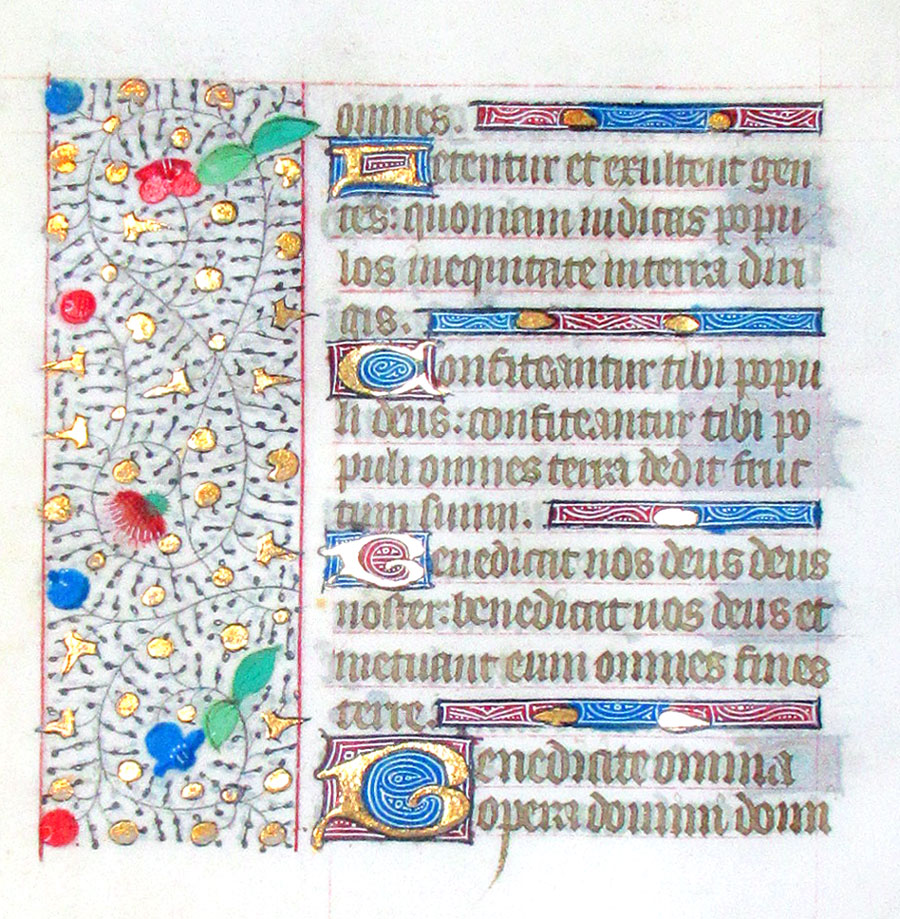 omnes.
Letentur et exultent gen
tes: quoniam iudicas popu
los inequitate interra diri
gis.
Confiteantur tibi popu
li deus: confiteantur tibi po
puli omnes terra dedit fruc
tum suum.
Benedicat nos deus deus
noster: benedicat nos deus et
metuant eum omnes fines
terre.
Benedicite omnia
opera domini domi